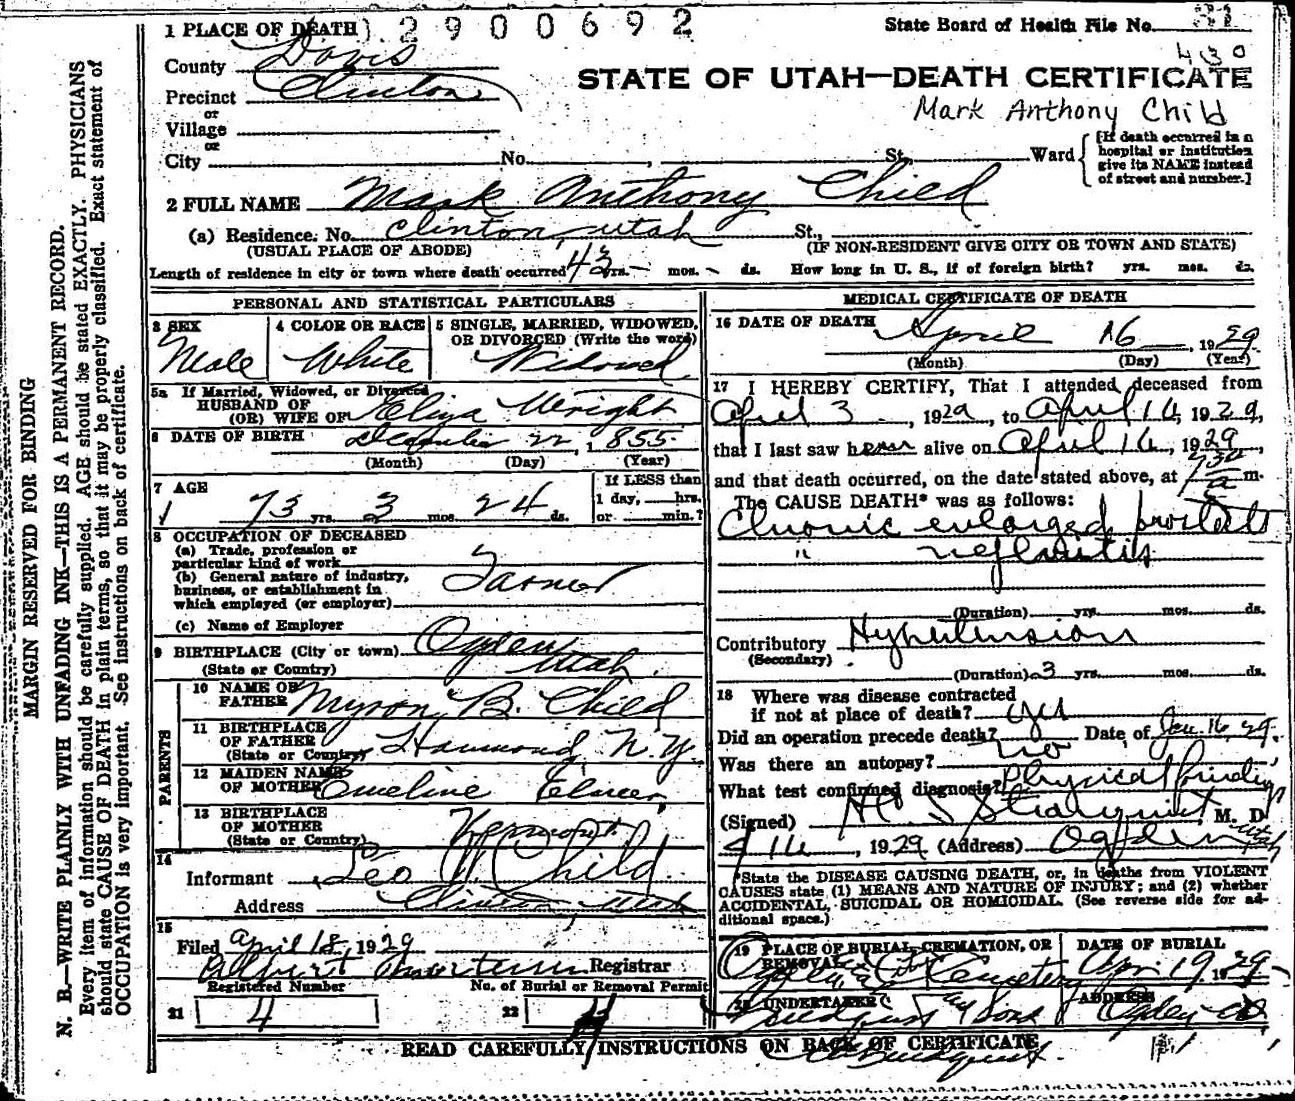 1 PLACE OF DEATH 2900692 State Board of Health File No. 31
County Davis 430
STATE OF UTAH—DEATH CERTIFICATE
Precinct Clinton
or
Mark Anthony Child
Village
or
City No. , St., Ward
[If death occurred in a
hospital or institution
give its NAME instead
of street and number.]
2 FULL NAME Mark Anthony Child
(a) Residence. No. Clinton, Utah St.,
(USUAL PLACE OF ABODE) (IF NON-RESIDENT GIVE CITY OR TOWN AND STATE)
Length of residence in city or town where death occurred 43 yrs. — mos. - ds. How long in U. S., if of foreign birth? yrs. mos. ds.
PERSONAL AND STATISTICAL PARTICULARS
3 SEX 4 COLOR OR RACE 5 SINGLE, MARRIED, WIDOWED,
OR DIVORCED (Write the word)
Male White Widowed
5a If Married, Widowed, or Divorced
HUSBAND OF
(OR) WIFE OF Eliza Wright
6 DATE OF BIRTH December 22, 1855
(Month) (Day) (Year)
7 AGE If LESS than
1 day, hrs.
73 yrs. 3 mos. 24 ds. or min.?
8 OCCUPATION OF DECEASED
(a) Trade, profession or
particular kind of work
(b) General nature of industry,
business, or establishment in
which employed (or employer)
Farmer
(c) Name of Employer
9 BIRTHPLACE (City or town) Ogden
(State or Country) Utah
PARENTS
10 NAME OF
FATHER Myron B. Child
11 BIRTHPLACE
OF FATHER
(State or Country) Hammond, N.Y.
12 MAIDEN NAME
OF MOTHER Emeline Elmer
13 BIRTHPLACE
OF MOTHER
(State or Country) Vermont
14
Informant Leo W. Child
Address Clinton, Utah
15
Filed April 18, 1929
Registrar
Registered Number No. of Burial or Removal Permit
21 4 22 4
MEDICAL CERTIFICATE OF DEATH
16 DATE OF DEATH April 16, 1929
(Month) (Day) (Year)
17 I HEREBY CERTIFY, That I attended deceased from
April 3, 1929, to April 16, 1929,
that I last saw h alive on April 16, 1929
and that death occurred, on the date stated above, at 730 a m.
The CAUSE DEATH* was as follows:
Chronic enlarged prostate
" nephritis
(Duration) yrs. mos. ds.
Contributory Hypertension
(Secondary)
(Duration) 3 yrs. mos. ds.
18 Where was disease contracted
if not at place of death? yes
Did an operation precede death? Date of Jan. 16, 29.
Was there an autopsy? no
What test confirmed diagnosis? Physical findings
(Signed) M. D.
4/16, 1929 (Address) Ogden Utah
*State the DISEASE CAUSING DEATH, or, in deaths from VIOLENT
CAUSES state (1) MEANS AND NATURE OF INJURY; and (2) whether
ACCIDENTAL, SUICIDAL OR HOMICIDAL. (See reverse side for ad-
ditional space.)
19 PLACE OF BURIAL, CREMATION, OR
REMOVAL
DATE OF BURIAL
Ogden City Cemetery Apr. 19, 1929
20 UNDERTAKER ADDRESS
& Sons Ogden
READ CAREFULLY INSTRUCTIONS ON BACK OF CERTIFICATE
MARGIN RESERVED FOR BINDING
N. B.—WRITE PLAINLY WITH UNFADING INK—THIS IS A PERMANENT RECORD.
Every item of information should be carefully supplied. AGE should be stated EXACTLY. PHYSICIANS
should state CAUSE OF DEATH in plain terms, so that it may be properly classified. Exact statement of
OCCUPATION is very important. See instructions on back of certificate.